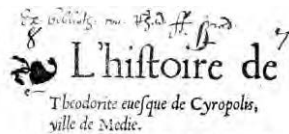 Ex
8
L'histoire de
Theodorite euesque de Cyropolis,
ville de Medie.